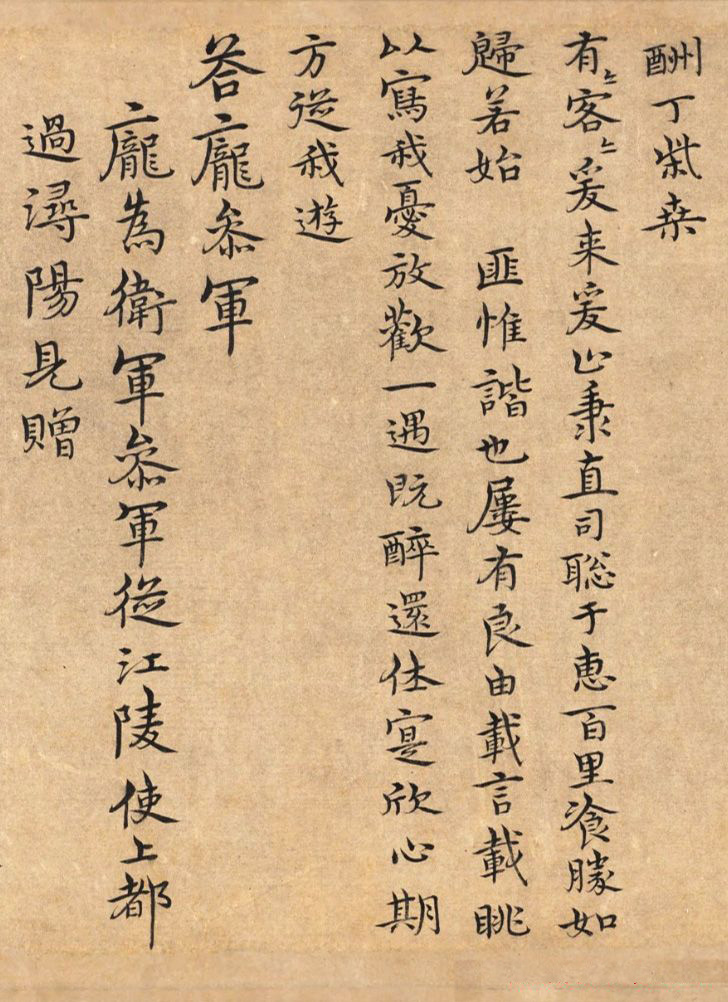 酬丁柴桒
有〻客〻爰来爰止秉直司聡于惠百里飡勝如
歸若始 匪惟諧也屢有良由載言載眺
以寫我憂放歡一遇既醉還休寔欣心期
方從我遊
荅龐叅軍
龐為衛軍叅軍從江陵使上都
過潯陽見贈